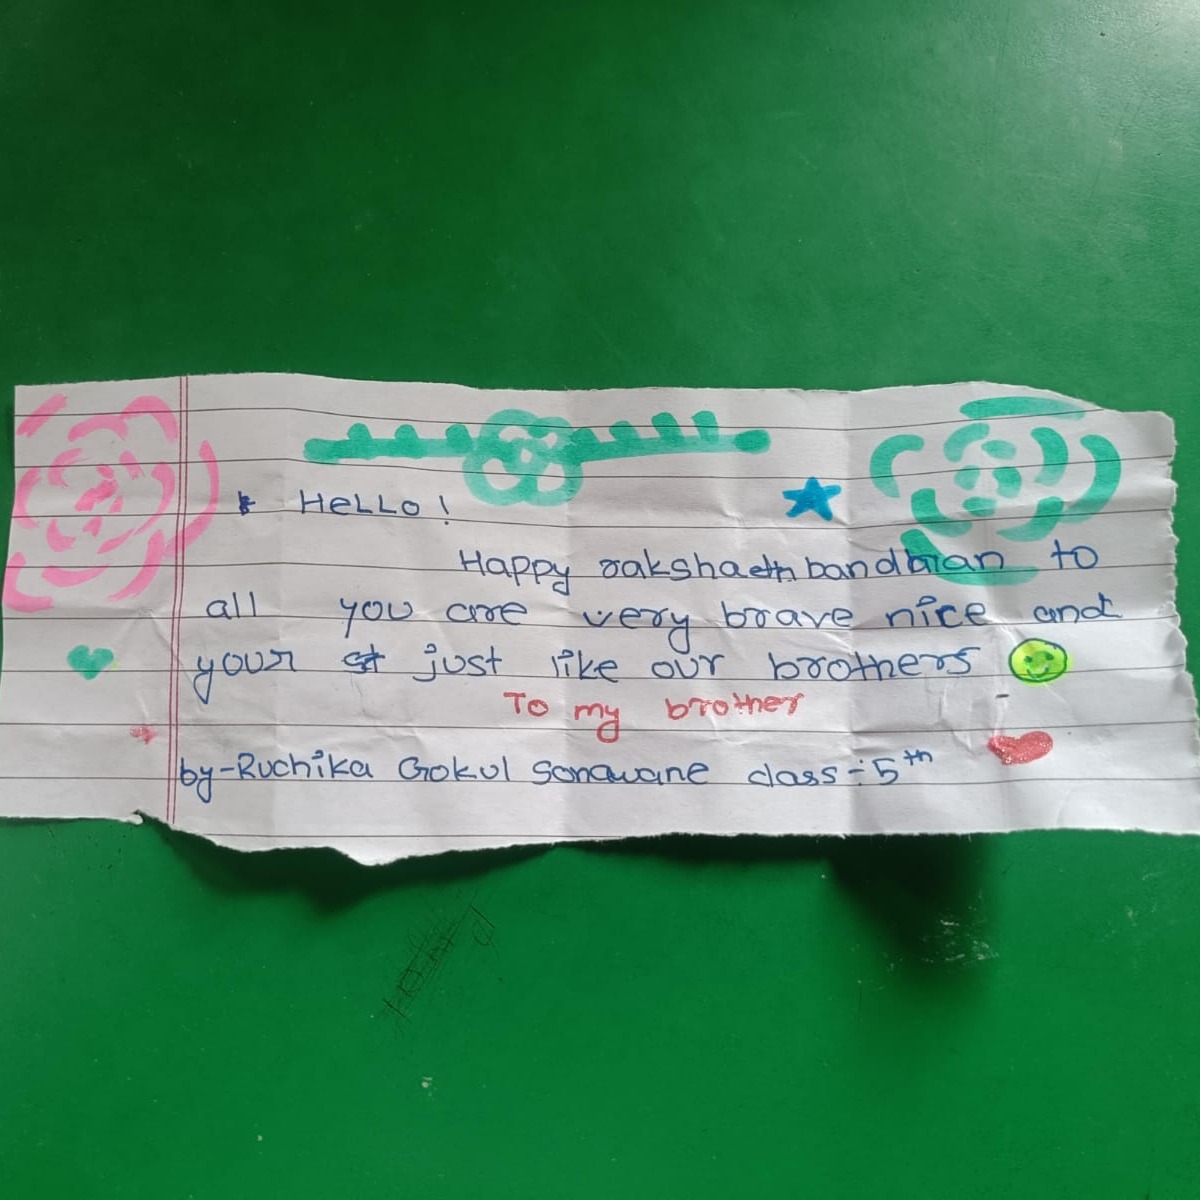 HeLLo!
Happy rakshaeth bandhan to
all you are very brave nice and
your just like our brothers
To my brother
by-Ruchika Gokul Sonawane class÷5th